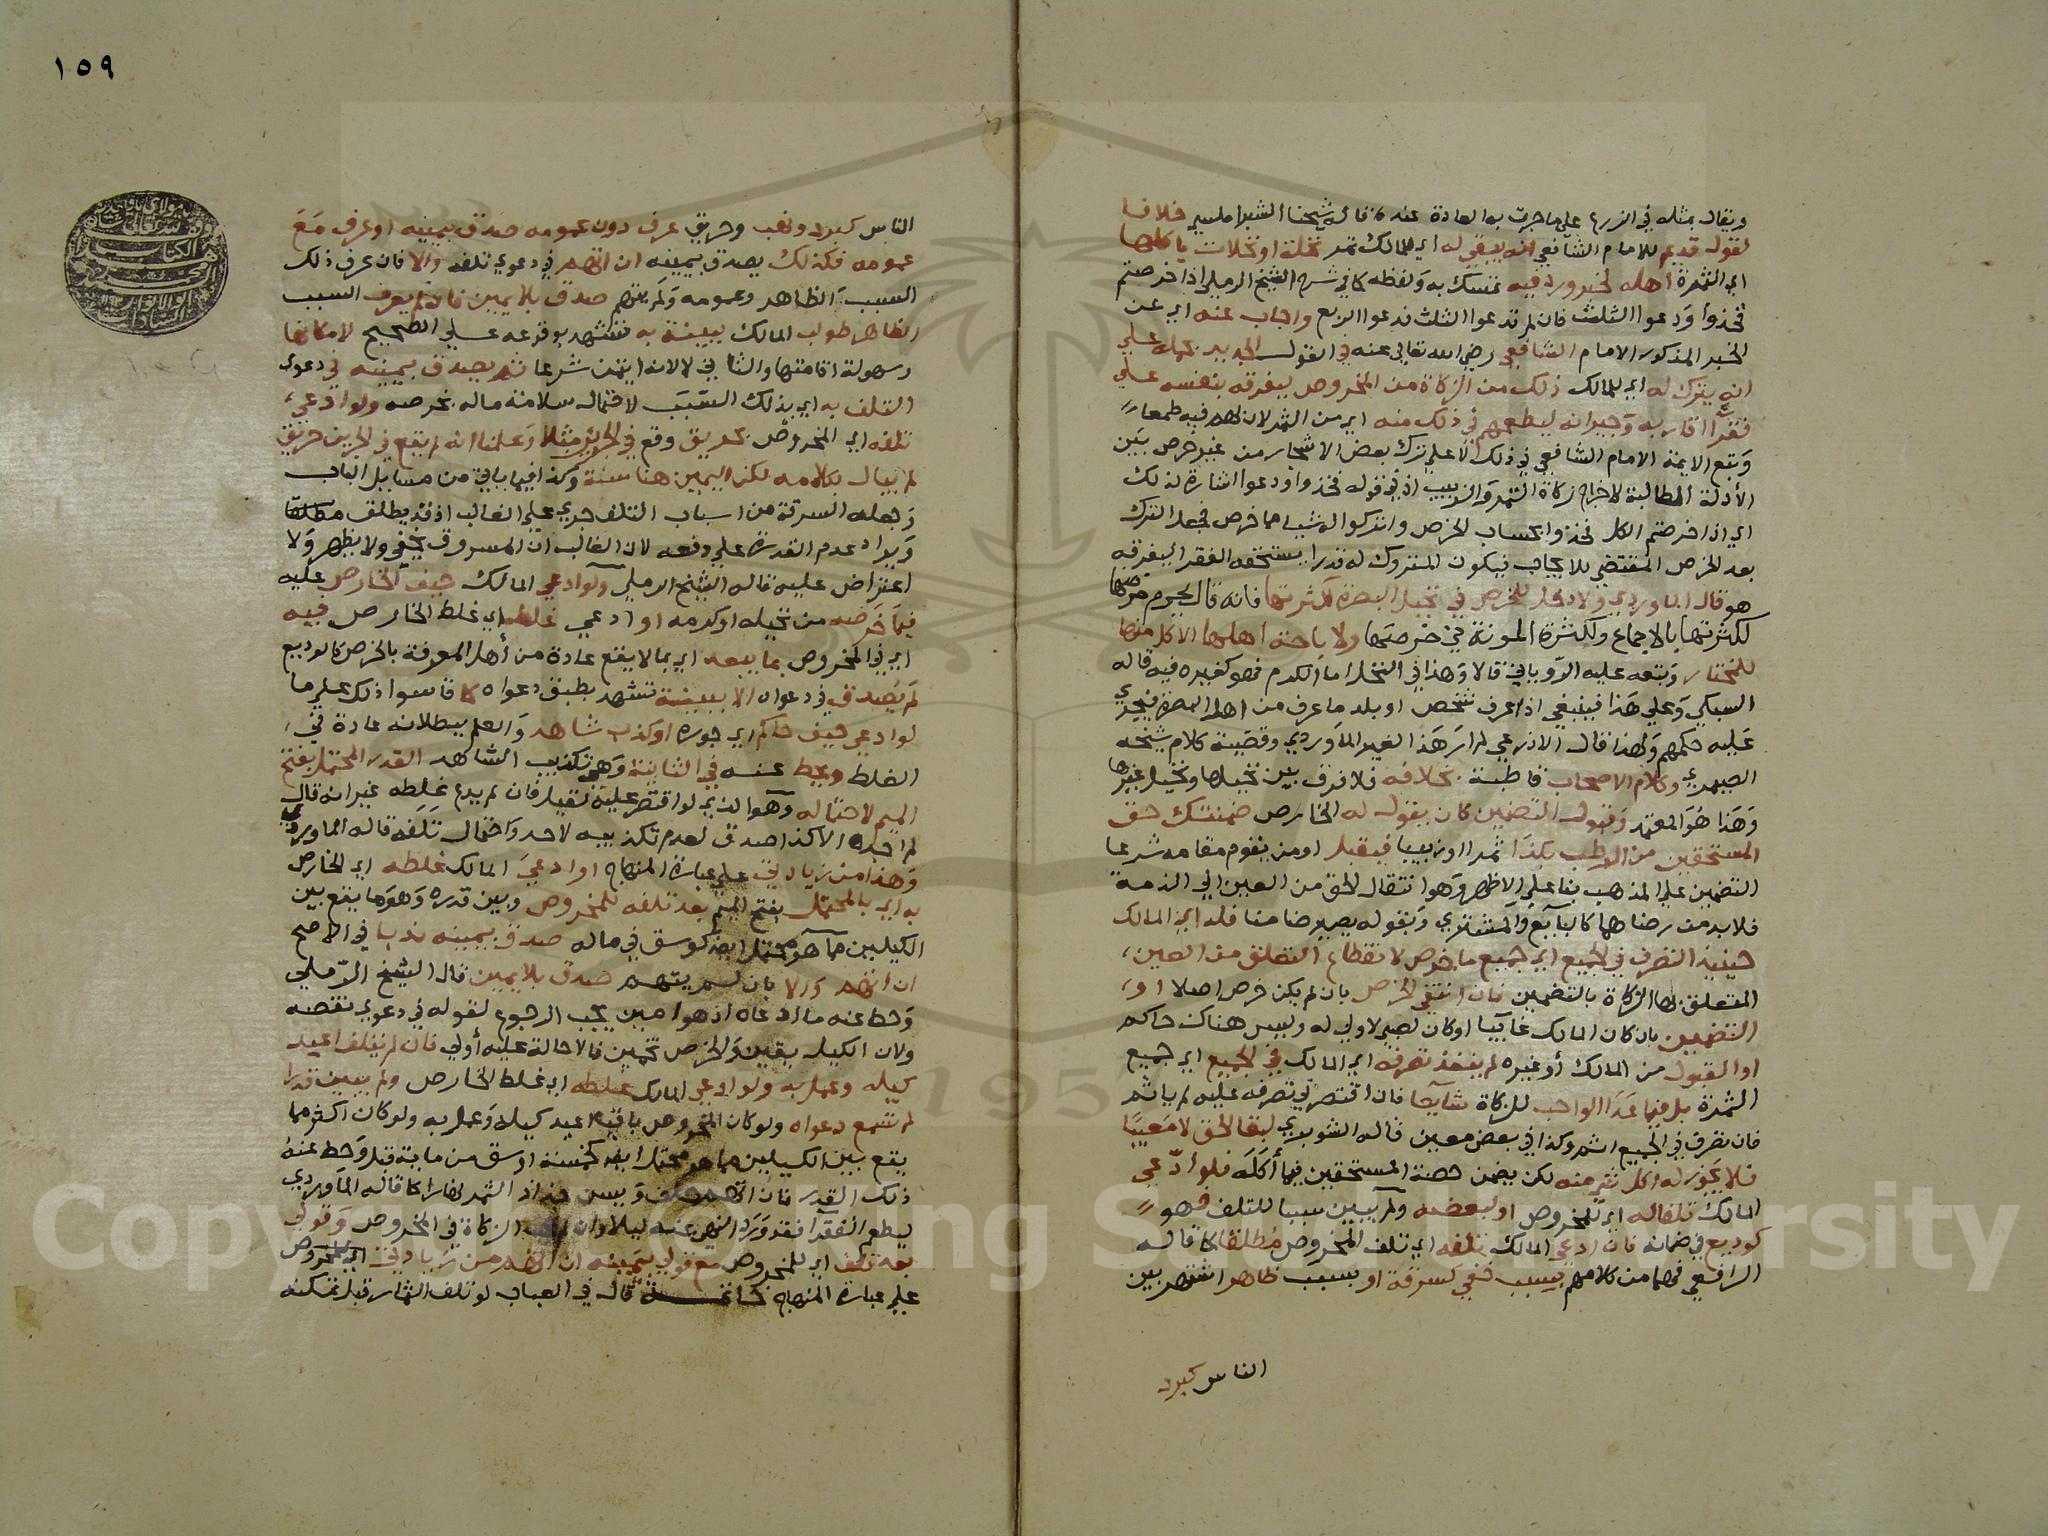 ويقال بمثله في الزرع على ما جرت به العادة عنه قاله شيخنا الشبراملسي خلافا
لقول قديم للامام الشافعي انه يبقى له اي للمالك ثمر نخلة او نخلات ياكلها
اي الثمرة اهله لخبر ورد فيه تمسك به ولفظه كما في شرح الشيخ الرملي اذا خرصتم
فخذوا ودعوا الثلث فان لم تدعوا الثلث فدعوا الربع واجاب عنه اي عن
الخبر المذكور الامام الشافعي رضي الله تعالى عنه في القول الجديد بحمله على
انه يترك له اي للمالك ذلك من الزكاة من المخروص ليفرقه بنفسه على
فقرا اقاربه وجيرانه ليطعمهم في ذلك منه اي من الثمر لان لهم فيه طمعا
وتبع الايمة الامام الشافعي في ذلك لا على ترك بعض الاشجار من غير خرص بين
الأدلة المطالبة لاخراج زكاة التمر والزبيب اذ في قوله فخذوا ودعوا اشارة لذلك
اي اذا خرصتم الكل فخذوا بحساب الخرص واتركوا له شيا مما خرص فجعل الترك
بعد الخرص المقتضي للايجاب فيكون المتروك له قدرا يستحقه الفقرا ليفرقه
هو قال الماوردي ولا دخل للخرص في نخيل البصرة لكثرتها فانه قال يحرم خرصها
لكثرتها بالاجماع ولكثرة المونة في خرصها ولاباحة اهلها الاكل منها
للمجتاز وتبعه عليه الروياني قالا وهذا في النخل اما الكرم فهو كغيره فيه قاله
السبكي وعلى هذا فينبغي اذا عرف شخص او بلد ما عرف من اهل البصرة فيجري
عليه حكمهم ولهذا قال الاذرعي لم ار هذا لغير الماوردي وقضية كلام شيخه
الصيمري وكلام الاصحاب قاطبة بخلافه فلا فرق بين نخيلها ونخيل غيرها
وهذا هو المعتمد وقبول التضمين كان يقول له الخارص ضمنتك حق
المستحقين من الرطب بكذا تمرا او زبيبا فيقبل او من يقوم مقامه شرعا
التضمين على المذهب بنا على الاظهر وهو انتقال الحق من العين الى الذمة
فلا بد من رضاهما كالبايع والمشتري وبقوله يصير ضامنا فله اي المالك
حينيذ التصرف في الجميع اي جميع ما خرص لانقطاع التعلق من العين
المتعلق بها الزكاة بالتضمين فان انتفى الخرص بان لم يكن خرص اصلا او
التضمين بان كان المالك غايبا او كان لصبي لا ولي له وليس هناك حاكم
او القبول من المالك أو غيره لم ينفذ تصرفه اي المالك في الجميع اي جميع
الثمرة بل فيما عدا الواجب للزكاة شايعا فان اقتصر في تصرفه عليه لم ياثم
فان تصرف في الجميع اثم وكذا في بعض معين قاله الشوبري لبقا الحق لا معينا
فلا يجوز له اكل شي منه لكن يضمن حصة المستحقين فيما أكله فلو ادعى
المالك تلفا له اي للمخروص او لبعضه ولم يبين سببا للتلف فهو
كوديع في ضمانه فان ادعى المالك تلفه اي تلف المخروص مطلقا كما قاله
الرافعي فهما من كلامهم بسبب خفي كسرقة او بسبب ظاهر اشتهر بين
الناس كبرد
١٥٩
الناس كبرد ونهب وحريق عرف دون عمومه صدق بيمينه او عرف مع
عمومه فكذلك يصدق بيمينه ان اتهم في دعوى تلفه والا فان عرف ذلك
السبب الظاهر وعمومه ولم يتهم صدق بلا يمين فان لم يعرف السبب
الظاهر طولب المالك ببينة به تشهد بوقوعه على الصحيح لامكانها
وسهولة اقامتها والثاني لا لانه ايتمن شرعا ثم يصدق بيمينه في دعوى
التلف به اي بذلك السبب لاحتمال سلامة ماله بخرصه ولو ادعى
تلفه اي المخروص بحريق وقع في الجرين مثلا وعلمنا انه لم يقع في الجرين حريق
لم يبال بكلامه لكن اليمين هنا سنة وكذا فيما ياتي من مسايل الباب
وجعله السرقة من اسباب التلف جري على الغالب اذ قد يطلق مطلقا
ويراد عدم القدرة على دفعه لان الغالب ان المسروق يخفى ولا يظهر ولا
اعتراض عليه قاله الشيخ الرملي ولو ادعى المالك حيف الخارص عليه
فيما خرصه من نخيله او كرمه او ادعى غلطه اي غلط الخارص فيه
اي في المخروص بما يبعد اي بما لا يقع عادة من أهل المعرفة بالخرص كالوديع
لم يصدق في دعواه الا ببينة تشهد بطبق دعواه كما قاسوا ذلك على ما
لو ادعى حيف حاكم اي جوره او كذب شاهد والعلم ببطلانه عادة في
الغلط ويحط عنه في الثانية وهي تكذيب الشاهد القدر المحتمل بفتح
الميم لاحتماله وهو الذي لو اقتصر عليه لقبل فان لم يدع غلطه غير انه قال
لم اجده الا كذا صدق لعدم تكذيبه لاحد واحتمال تلفه قاله الماوردي
وهذا من زيادتي على عبارة المنهاج او ادعى المالك غلطه اي الخارص
به اي بالمحتمل بفتح الميم بعد تلفه للمخروص وبين قدره وهو ما يقع بين
الكيلين مما هو محتمل ايضا كوسق في ماله صدق بيمينه ندبا في الاصح
ان اتهم والا بان لم يتهم صدق بلا يمين قال الشيخ الرملي
وحط عنه ما ادعاه اذ هو امين يجب الرجوع لقوله في دعوى نقصه
ولان الكيل يقين والخرص تخمين فالاحالة عليه أولى فان لم يتلف اعيد
كيله وعمل به ولو ادعى المالك غلطه اي غلط الخارص ولم يبين قدرا
لم تسمع دعواه ولو كان المخروص باقيا اعيد كيله وعمل به ولو كان اكثر مما
يقع بين الكيلين مما هو محتمل ايضا كخمسة اوسق من ماية قبل وحط عنه
ذلك القدر فان اتهم حلف ويسن جذاذ الثمر نهارا كما قاله الماوردي
ليطعم الفقرا فقد ورد النهي عنه ليلا وان لم تجب الزكاة في المخروص وقولي
بعد تلف اي للمخروص مع قولي بيمينه ان اتهم من زيادتي اي للمخروص
على عبارة المنهاج خاتمة قال في العباب لو تلف الثمار قبل تمكنه